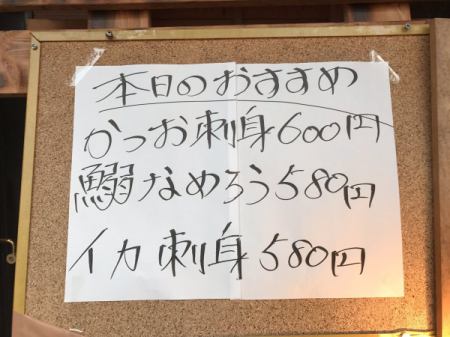 本日のおすすめ
かつお刺身600円
鰯なめろう580円
イカ刺身580円